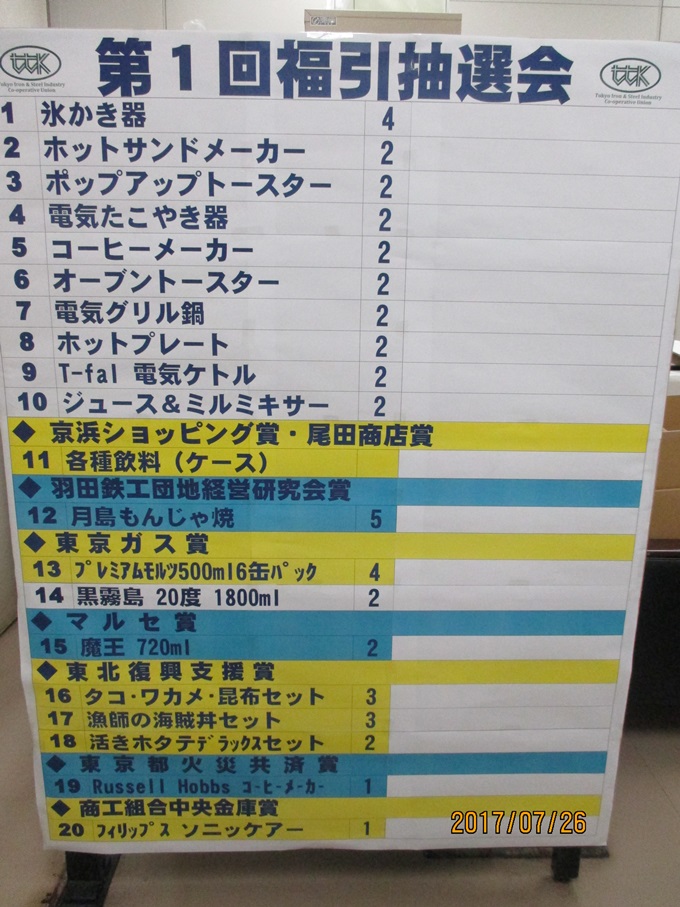 第1回福引抽選会
ttK
Tokyo Iron & Steel Industry
Co-operative Union
ttK
Tokyo Iron & Steel Industry
Co-operative Union
1 氷かき器 4
2 ホットサンドメーカー 2
3 ポップアップトースター 2
4 電気たこやき器 2
5 コーヒーメーカー 2
6 オーブントースター 2
7 電気グリル鍋 2
8 ホットプレート 2
9 T-fal 電気ケトル 2
10 ジュース&ミルミキサー 2
◆ 京浜ショッピング賞・尾田商店賞
11 各種飲料（ケース）
◆ 羽田鉄工団地経営研究会賞
12 月島もんじゃ焼 5
◆ 東京ガス賞
13 ﾌﾟﾚﾐｱﾑﾓﾙﾂ500ml6缶ﾊﾟｯｸ 4
14 黒霧島 20度 1800ml 2
◆ マルセ賞
15 魔王 720ml 2
◆ 東北復興支援賞
16 タコ・ワカメ・昆布セット 3
17 漁師の海賊丼セット 3
18 活きホタテﾃﾞﾗｯｸｽセット 2
◆ 東京都火災共済賞
19 Russell Hobbs ｺｰﾋｰﾒｰｶｰ 1
◆ 商工組合中央金庫賞
20 ﾌｨﾘｯﾌﾟｽ ソニッケアー 1
2017/07/26